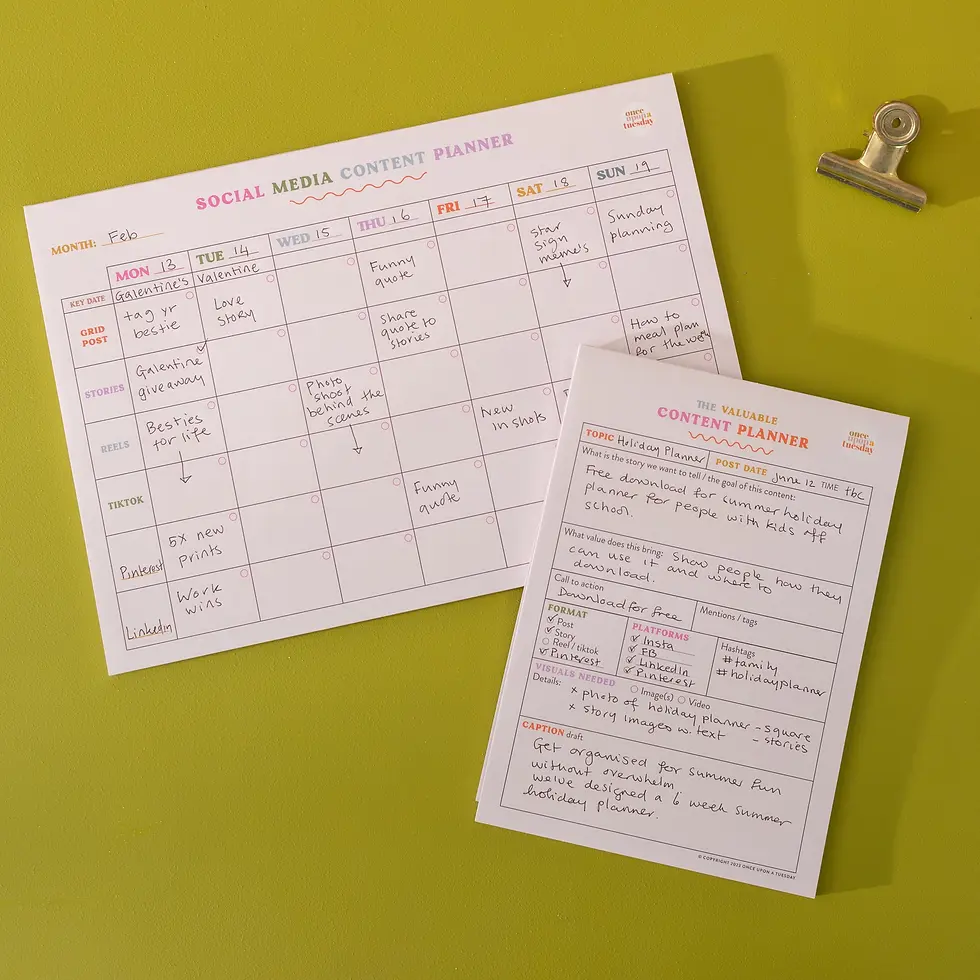 once
upon a
tuesday
SOCIAL MEDIA CONTENT PLANNER
MONTH: Feb
MON 13 TUE 14 WED 15 THU 16 FRI 17 SAT 18 SUN 19
KEY DATE Galentine's Valentine
GRID
POST
tag yr
bestie
Love
story
Funny
quote
star
sign
meme's
Sunday
planning
STORIES
Galentine
giveaway
Share
quote to
stories
How to
meal plan
for the week
REELS
Besties
for life
Photo
shoot
behind the
scenes
New
in shots
TIKTOK
Funny
quote
Pinterest
5x new
prints
Linkedin
Work
wins
THE VALUABLE
CONTENT PLANNER
once
upon a
tuesday
TOPIC Holiday Planner POST DATE June 12 TIME tbc
What is the story we want to tell / the goal of this content:
Free download for summer holiday
planner for people with kids off
school.
What value does this bring: Show people how they
can use it and where to
download.
Call to action
Download for free
Mentions / tags
FORMAT
Post
Story
Reel / tiktok
Pinterest
PLATFORMS
Insta
FB
LinkedIn
Pinterest
Hashtags
#family
#holidayplanner
VISUALS NEEDED Image(s) Video
Details: x photo of holiday planner - square
x story images w. text - stories
CAPTION draft
Get organised for summer fun
without overwhelm.
We've designed a 6 week summer
holiday planner.
© COPYRIGHT 2023 ONCE UPON A TUESDAY